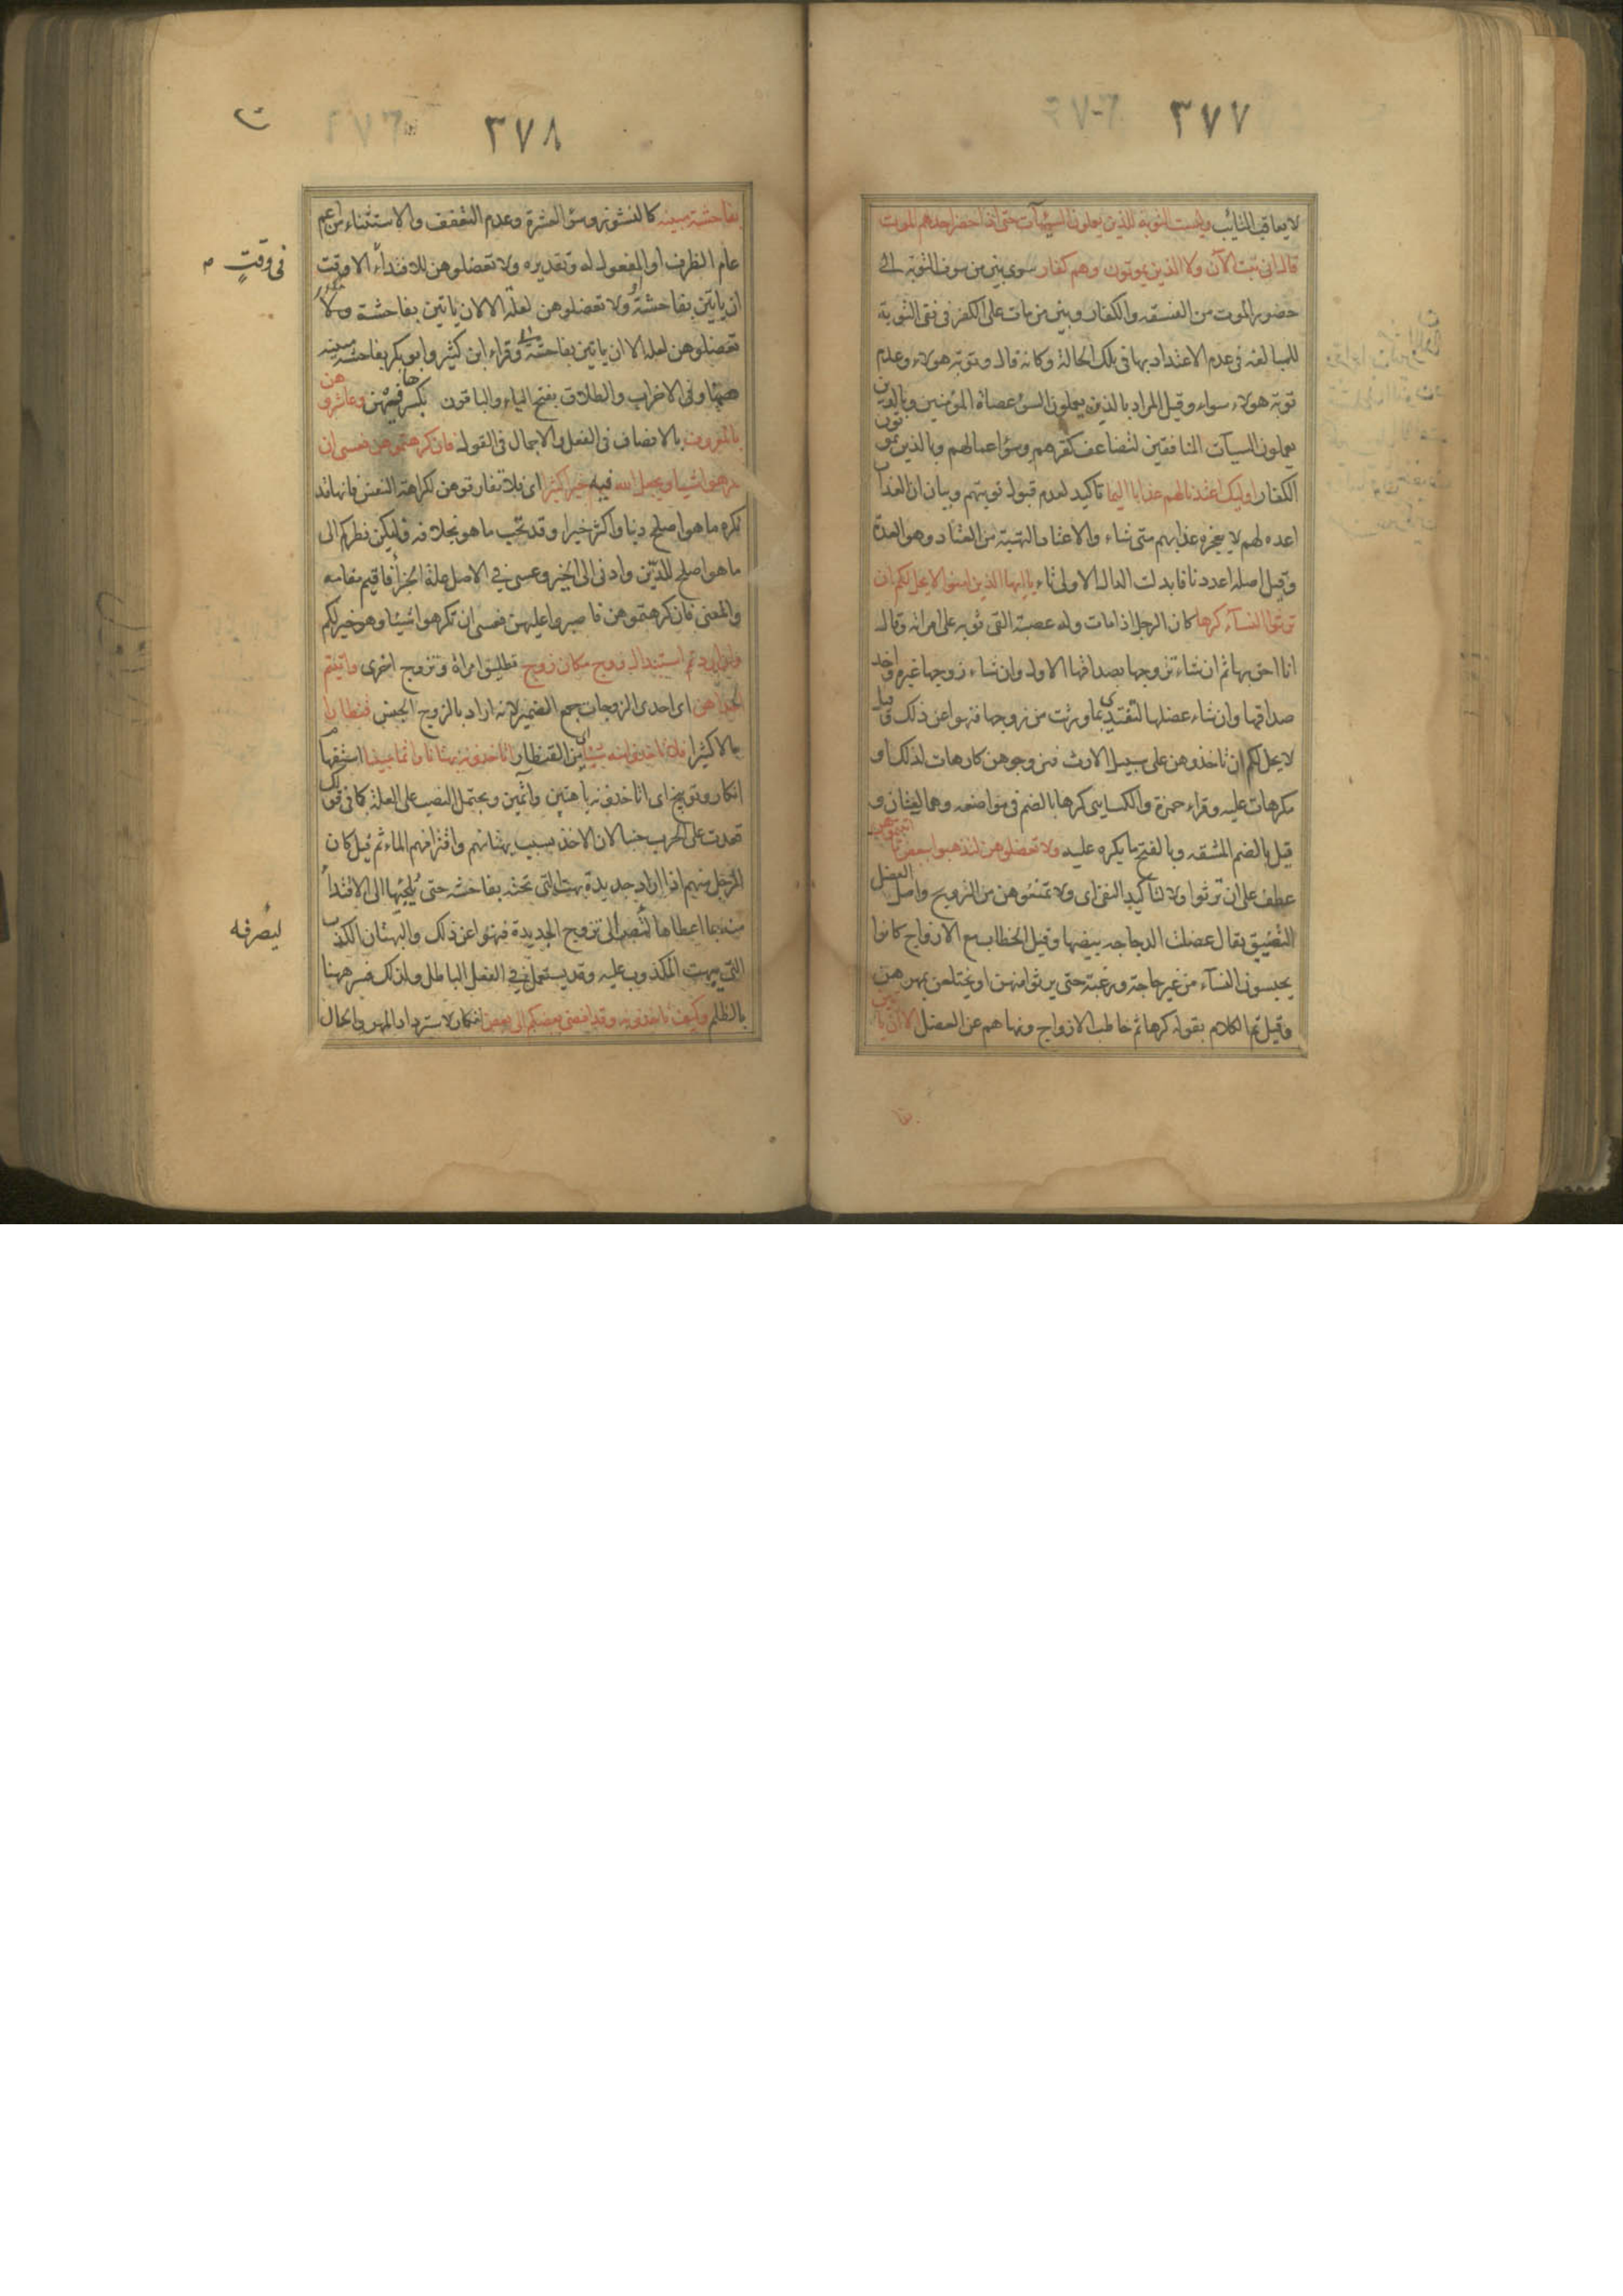 ٣٧٧
لا يعاقب التائب وليست التوبة للذين يعملون السيئات حتى اذا حضر احدهم الموت
قال انى تبت الآن ولا الذين يموتون وهم كفار سوى بين من سوف التوبة الى
حضور الموت من الفسقه والكفار وبين من مات على الكفر فى نفى التوبة
للمبالغه فى عدم الاعتداد بها فى تلك الحالة وكانه قال وتوبة هولاء وعدم
توبة هولاء سواء وقيل المراد بالذين يعملون السوء عصاة المؤمنين وبالذين
يعملون السيآت المنافقين لتضاعف كفرهم وسوء اعمالهم وبالذين يموتون
الكفار اوليك اعتدنا لهم عذابا اليما تاكيد لعدم قبول توبتهم وبيان ان العذاب
اعده لهم لا يعجزه عذابهم متى شاء والاعتاد التهيئة من العتاد وهو العدة
وقيل اصله اعددنا فابدلت الدال الاولى تاء ياايها الذين امنوا لا يحل لكم ان
ترثوا النسآء كرها كان الرجل اذا مات وله عصبة القى ثوبه على امراته وقال
انا احق بها ثم ان شاء تزوجها بصداقها الاول وان شاء زوجها غيره واخذ
صداقها وان شاء عضلها لتفتدى بما ورثت من زوجها فنهوا عن ذلك وقيل
لا يحل لكم ان تاخذوهن على سبيل الارث فتزوجوهن كارهات لذلك او
مكرهات عليه وقراء حمزة والكسايى كرها بالضم فى مواضعه وهما لغتان و
قيل بالضم المشقه وبالفتح ما يكره عليه ولا تعضلوهن لتذهبوا ببعض ما اتيتموهن
عطف على ان ترثوا ولا لتاكيد النفى اى ولا تمنعوهن من التزويج واصل العضل
التضييق يقال عضلت الدجاجه ببيضها وقيل الخطاب مع الازواج كانوا
يحبسون النسآء من غير حاجة ورغبة حتى يرثوا منهن او يختلعن بمهرهن
وقيل تم الكلام بقوله كرها ثم خاطب الازواج ونهاهم عن العضل الا ان ياتين
٣٧٨
بفاحشة مبينه كالنشوز وسوء العشرة وعدم التعفف والاستثناء من اعم
عام الظرف او المفعول له وتقديره ولا تعضلوهن للافتداء الا وقت
ان ياتين بفاحشة ولا تعضلوهن لعلة الا لان ياتين بفاحشة ولا
تعضلوهن لعله الا ان ياتين بفاحشة وقراء ابن كثير وابو بكر بفاحشة مبينه
هنا وفى الاحزاب والطلاق بفتح الياء والباقون بكسرها فيهن وعاشروهن
بالمعروف بالانصاف فى الفعل والاجمال فى القول فان كرهتموهن فعسى ان
تكرهوا شيئا ويجعل الله فيه خيرا كثيرا اى فلا تفارقوهن لكراهة النفس فانها قد
تكره ما هو اصلح دينا واكثر خيرا وقد تحب ما هو بخلافه وليكن نظركم الى
ما هو اصلح للدين وادنى الى الخير وعسى فى الاصل علة الجزاء فاقيم مقامه
والمعنى فان كرهتموهن فاصبروا عليهن فعسى ان تكرهوا شيئا وهو خير لكم
وان اردتم استبدال زوج مكان زوج تطليق امراة وتزوج اخرى واتيتم
احداهن اى احدى الزوجات جمع الضمير لانه اراد بالزوج الجنس قنطارا
مالا كثيرا فلا تاخذوا منه شيئا اى من القنطار اتاخذونه بهتانا واثما مبينا استفهام
انكار وتوبيخ اى اتاخذونه باهتين واثمين ويحتمل النصب على العلة كما فى قولك
قعدت عن الحرب جبنا لان الاخذ بسبب بهتانهم واقترافهم الماثم قيل كان
الرجل منهم اذا اراد جديدة بهت التى تحته بفاحشة حتى يلجئها الى الافتداء
منه بما اعطاها لتصرفه الى تزوج الجديدة فنهوا عن ذلك والبهتان الكذب
التى يبهت المكذوب عليه وقد يستعمل فى الفعل الباطل ولذلك فسر ههنا
بالظلم وكيف تاخذونه وقد افضى بعضكم الى بعض انكار لاسترداد المهر والحال
فى وقتٍ م
ليصرفه